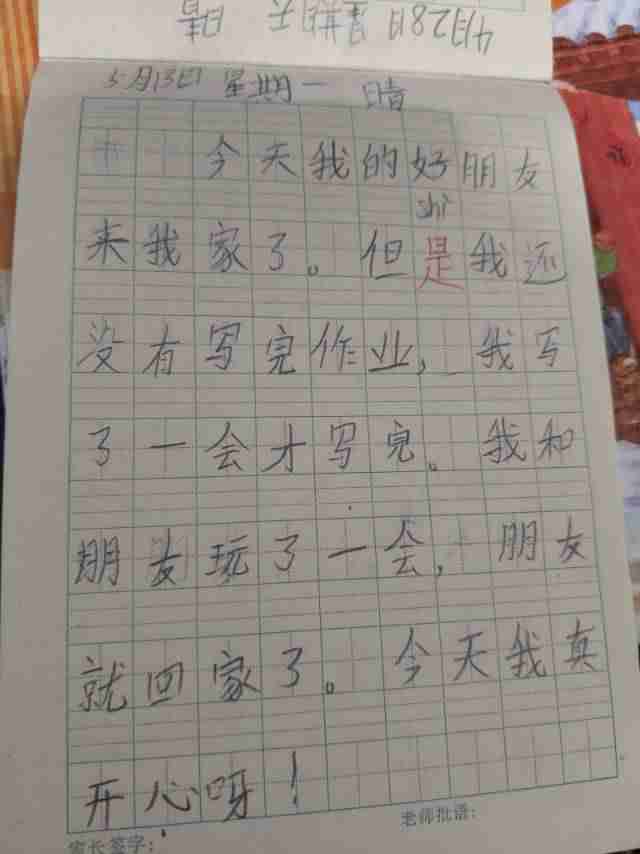 4月28日 星期天 晴
5月13日 星期一 晴
今天我的好朋友
shì
来我家了。但是我还
没有写完作业,我写
了一会才写完。我和
朋友玩了一会,朋友
就回家了。今天我真
开心呀!
老师批语:
家长签字: